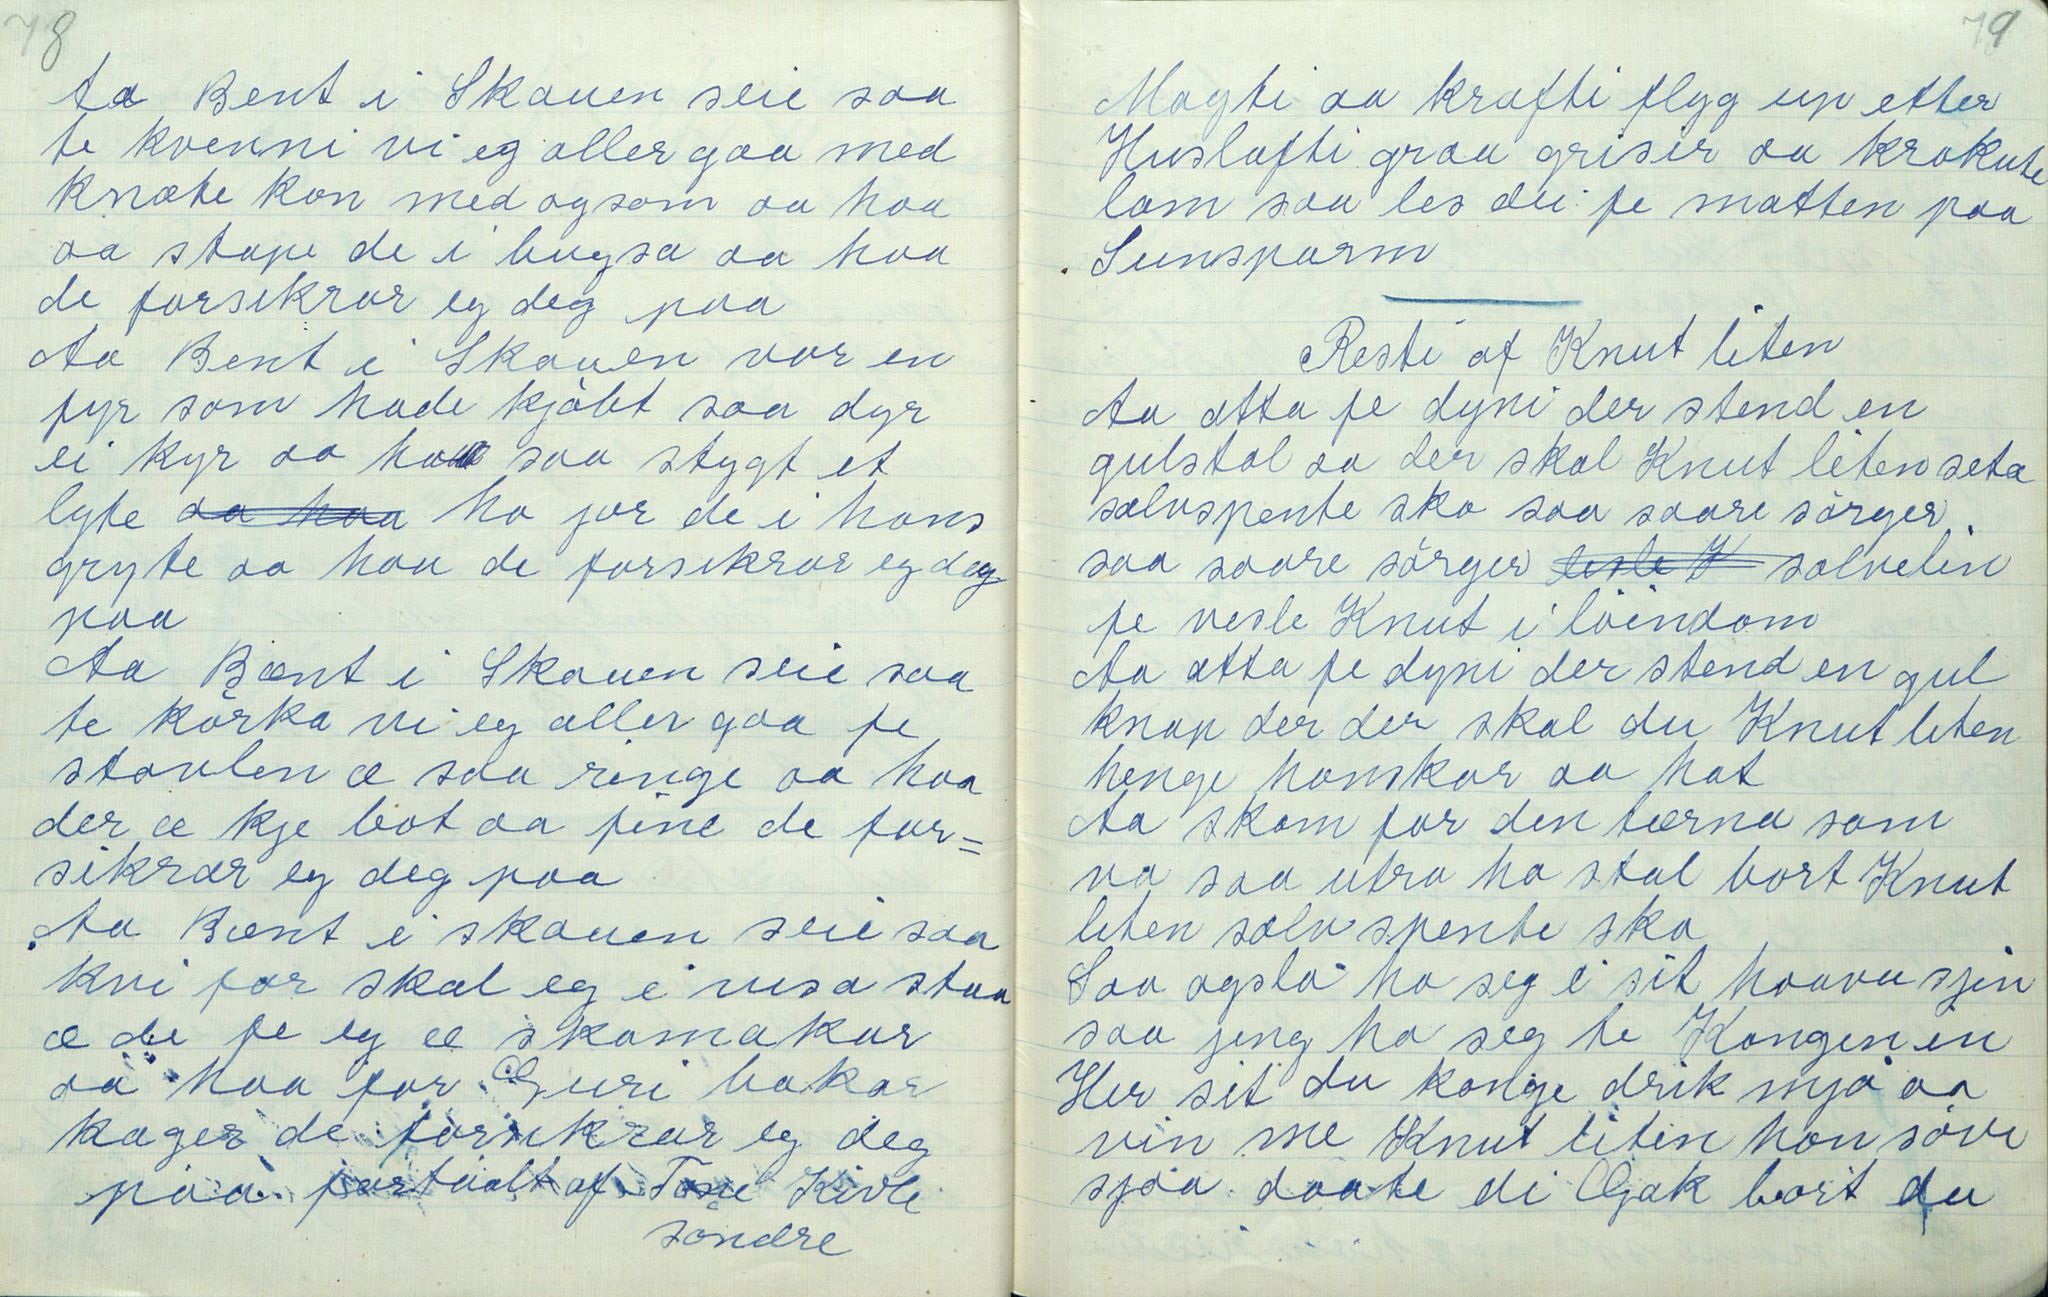 78
Aa Bent i Skauen seie saa
te kvenni vi eg aller gaa med
knæte kon med ogsom aa haa
aa stape de i bugsa aa haa
de forsikrar eg deg paa
Aa Bent i Skauen var en
fyr som hade kjøbt saa dyr
ei kyr aa ha saa stygt et
lyte aa haa ho jor de i hans
gryte aa haa de forsikrar eg deg
paa
Aa Bænt i Skauen seie saa
te kørka vi eg aller gaa fe
stavlen æ saa ringe aa haa
der æ kje bot aa fine de for=
sikrar eg deg paa
Aa Bænt i skauen seie saa
kvi for skal eg i visa staa
æ de fe eg æ skomakar
aa haa for Guri bakar
kager de forsikrar eg deg
paa. fortaalt af Tone Kivle
søndre
79
Magti aa krafti flyg up etter
Huslafti graa grisir aa krokute
lam saa les dei fe matten paa
Sunsparm
Resti af Knut liten
Aa atta fe dyni der stend en
gulstol aa der skal Knut liten seta
sølvspente sko saa saare sørger
saa saare sørger lisle K sølvelin
fe vesle Knut i løindom
Aa atta fe dyni der stend en gul
knap der der skal du Knut liten
henge hanskar aa hat
Aa skam for den tærna som
va saa utro ho stal bort Knut
liten sølv spente sko
Saa ogslo ho seg i sit haavu sjin
saa jeng ho seg te Kongen in
Her sit du konge drik mjø aa
vin me Knut liten han søve
sjaa daate di Gjak bort du